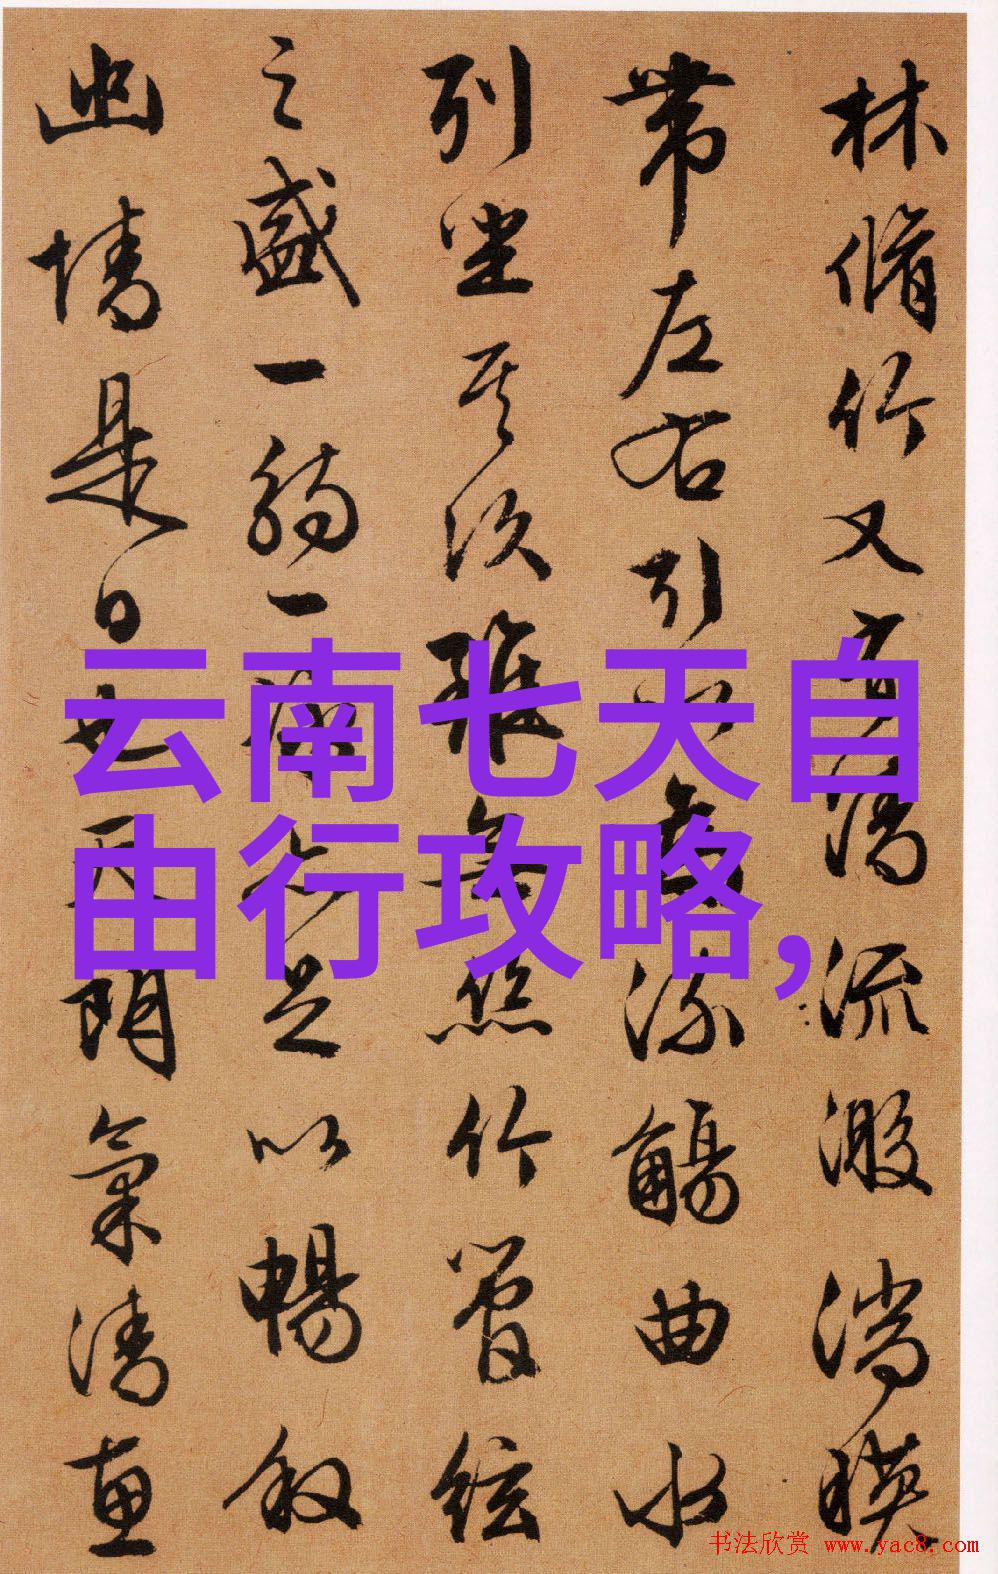 林脩竹又有清流激湍暎
帶左右引以為流觴曲水
列坐其次雖無絲竹管絃
之盛一觴一詠亦足以暢叙
幽情是日也天朗氣清惠
云南七天自
由行攻略,
书法欣赏 www.yac8.com